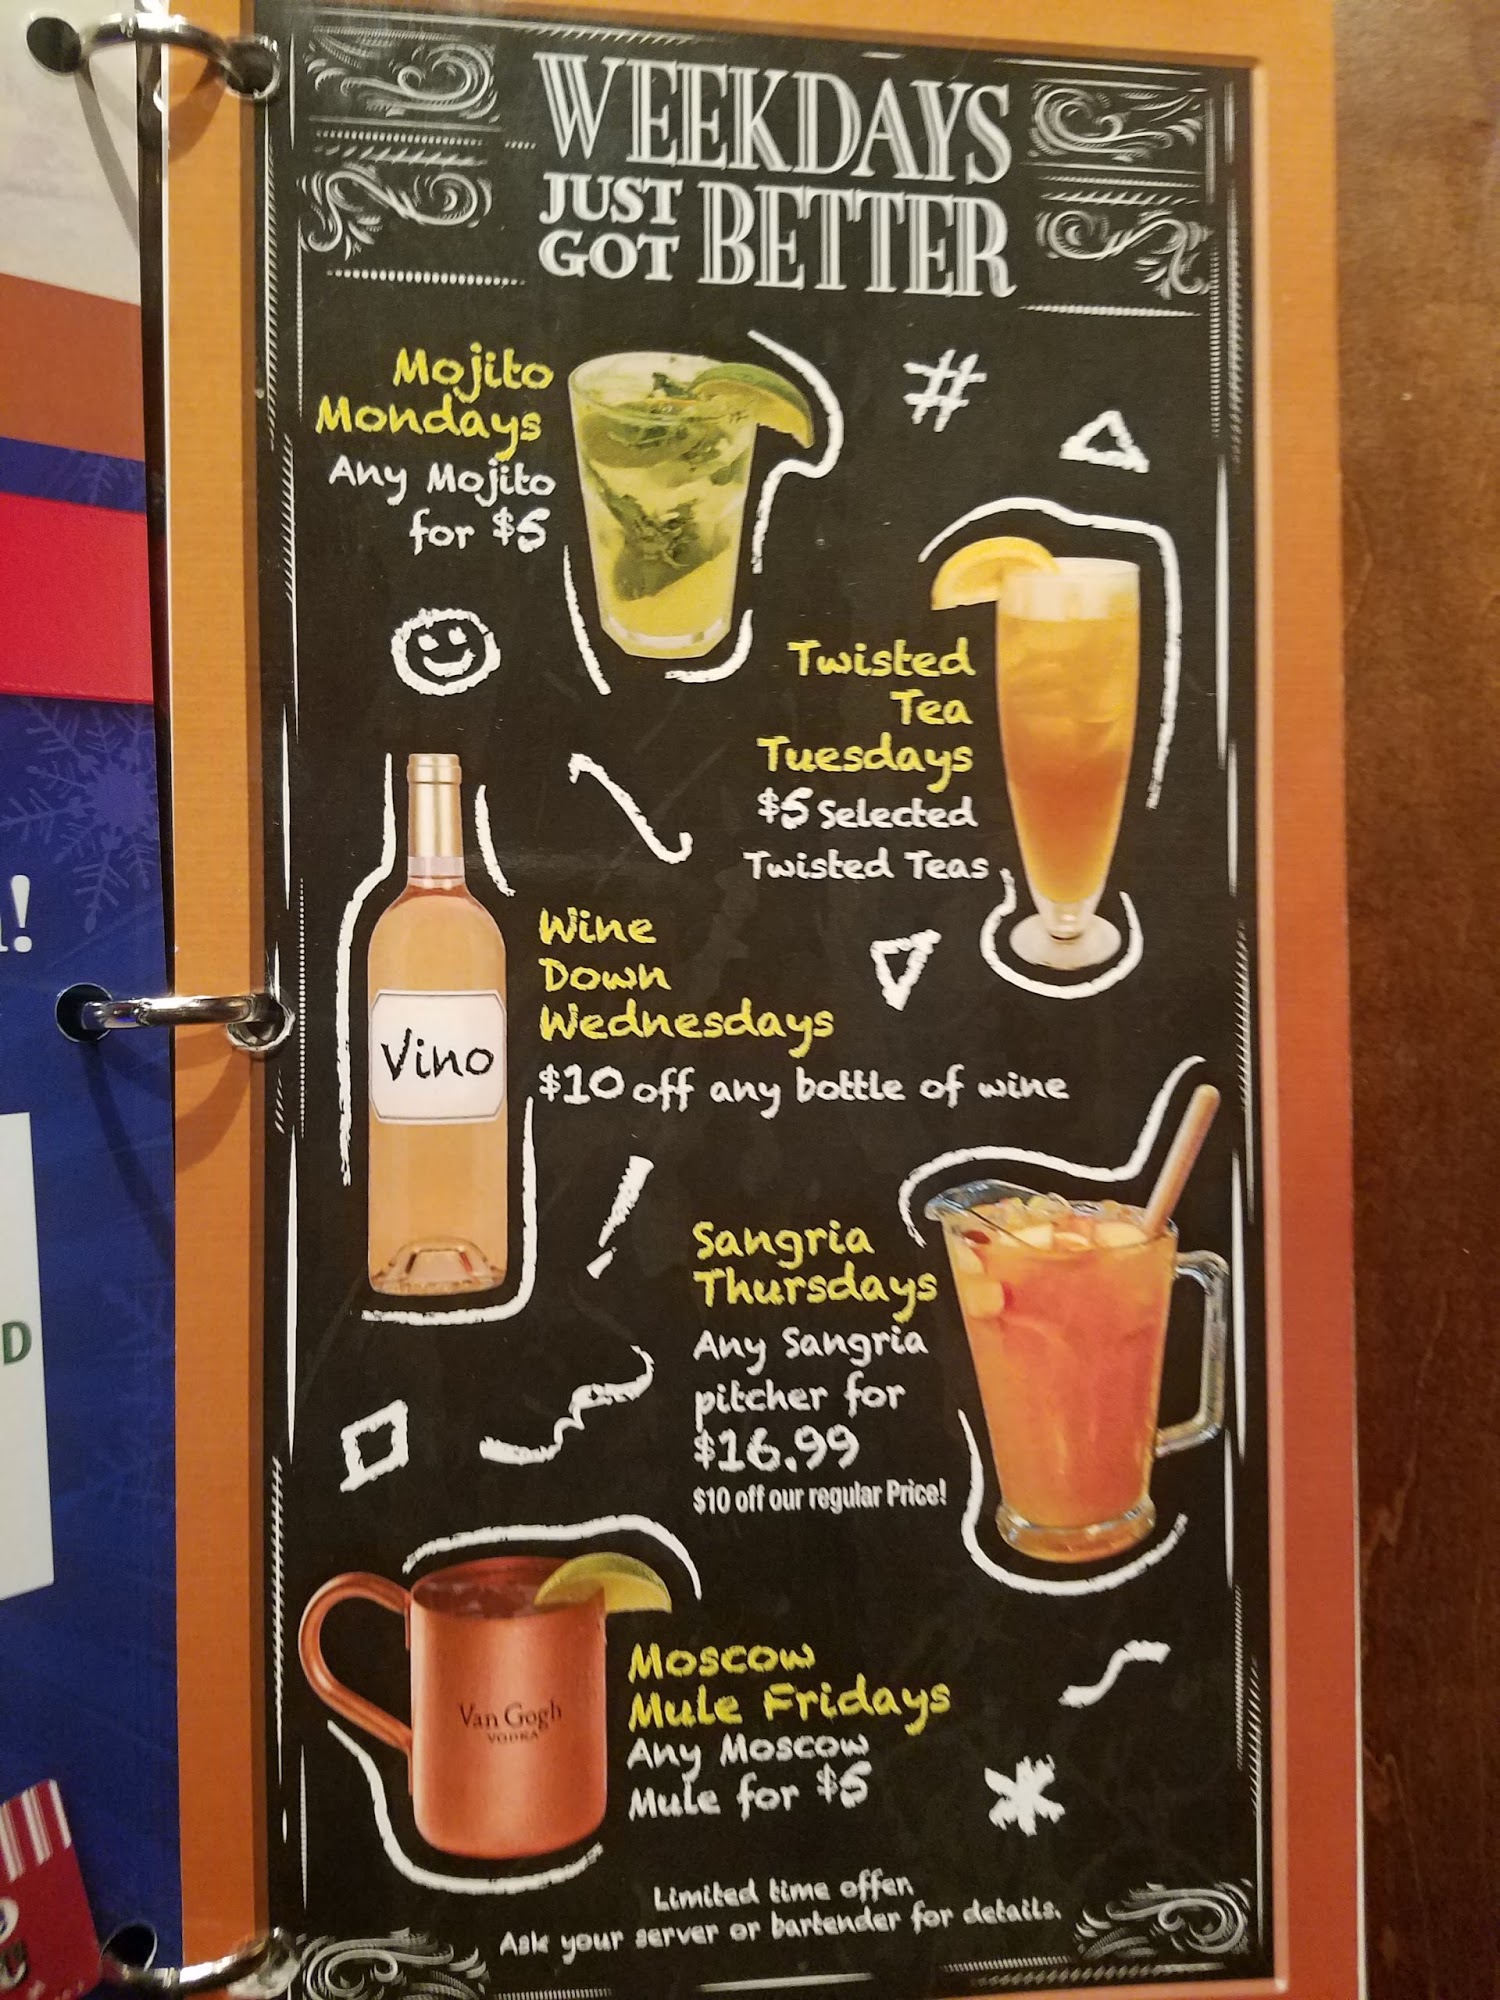 WEEKDAYS
JUST GOT BETTER
Mojito
Mondays
Any Mojito
for $5
#
Twisted
Tea
Tuesdays
$5 Selected
Twisted Teas
Wine
Down
Wednesdays
$10 off any bottle of wine
Vino
Sangria
Thursdays
Any Sangria
pitcher for
$16.99
$10 off our regular Price!
Van Gogh
VODKA
Moscow
Mule Fridays
Any Moscow
Mule for $5
Limited time offer.
Ask your server or bartender for details.
!
D